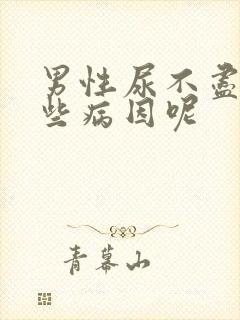 男性尿不尽
些病因呢
青幕山